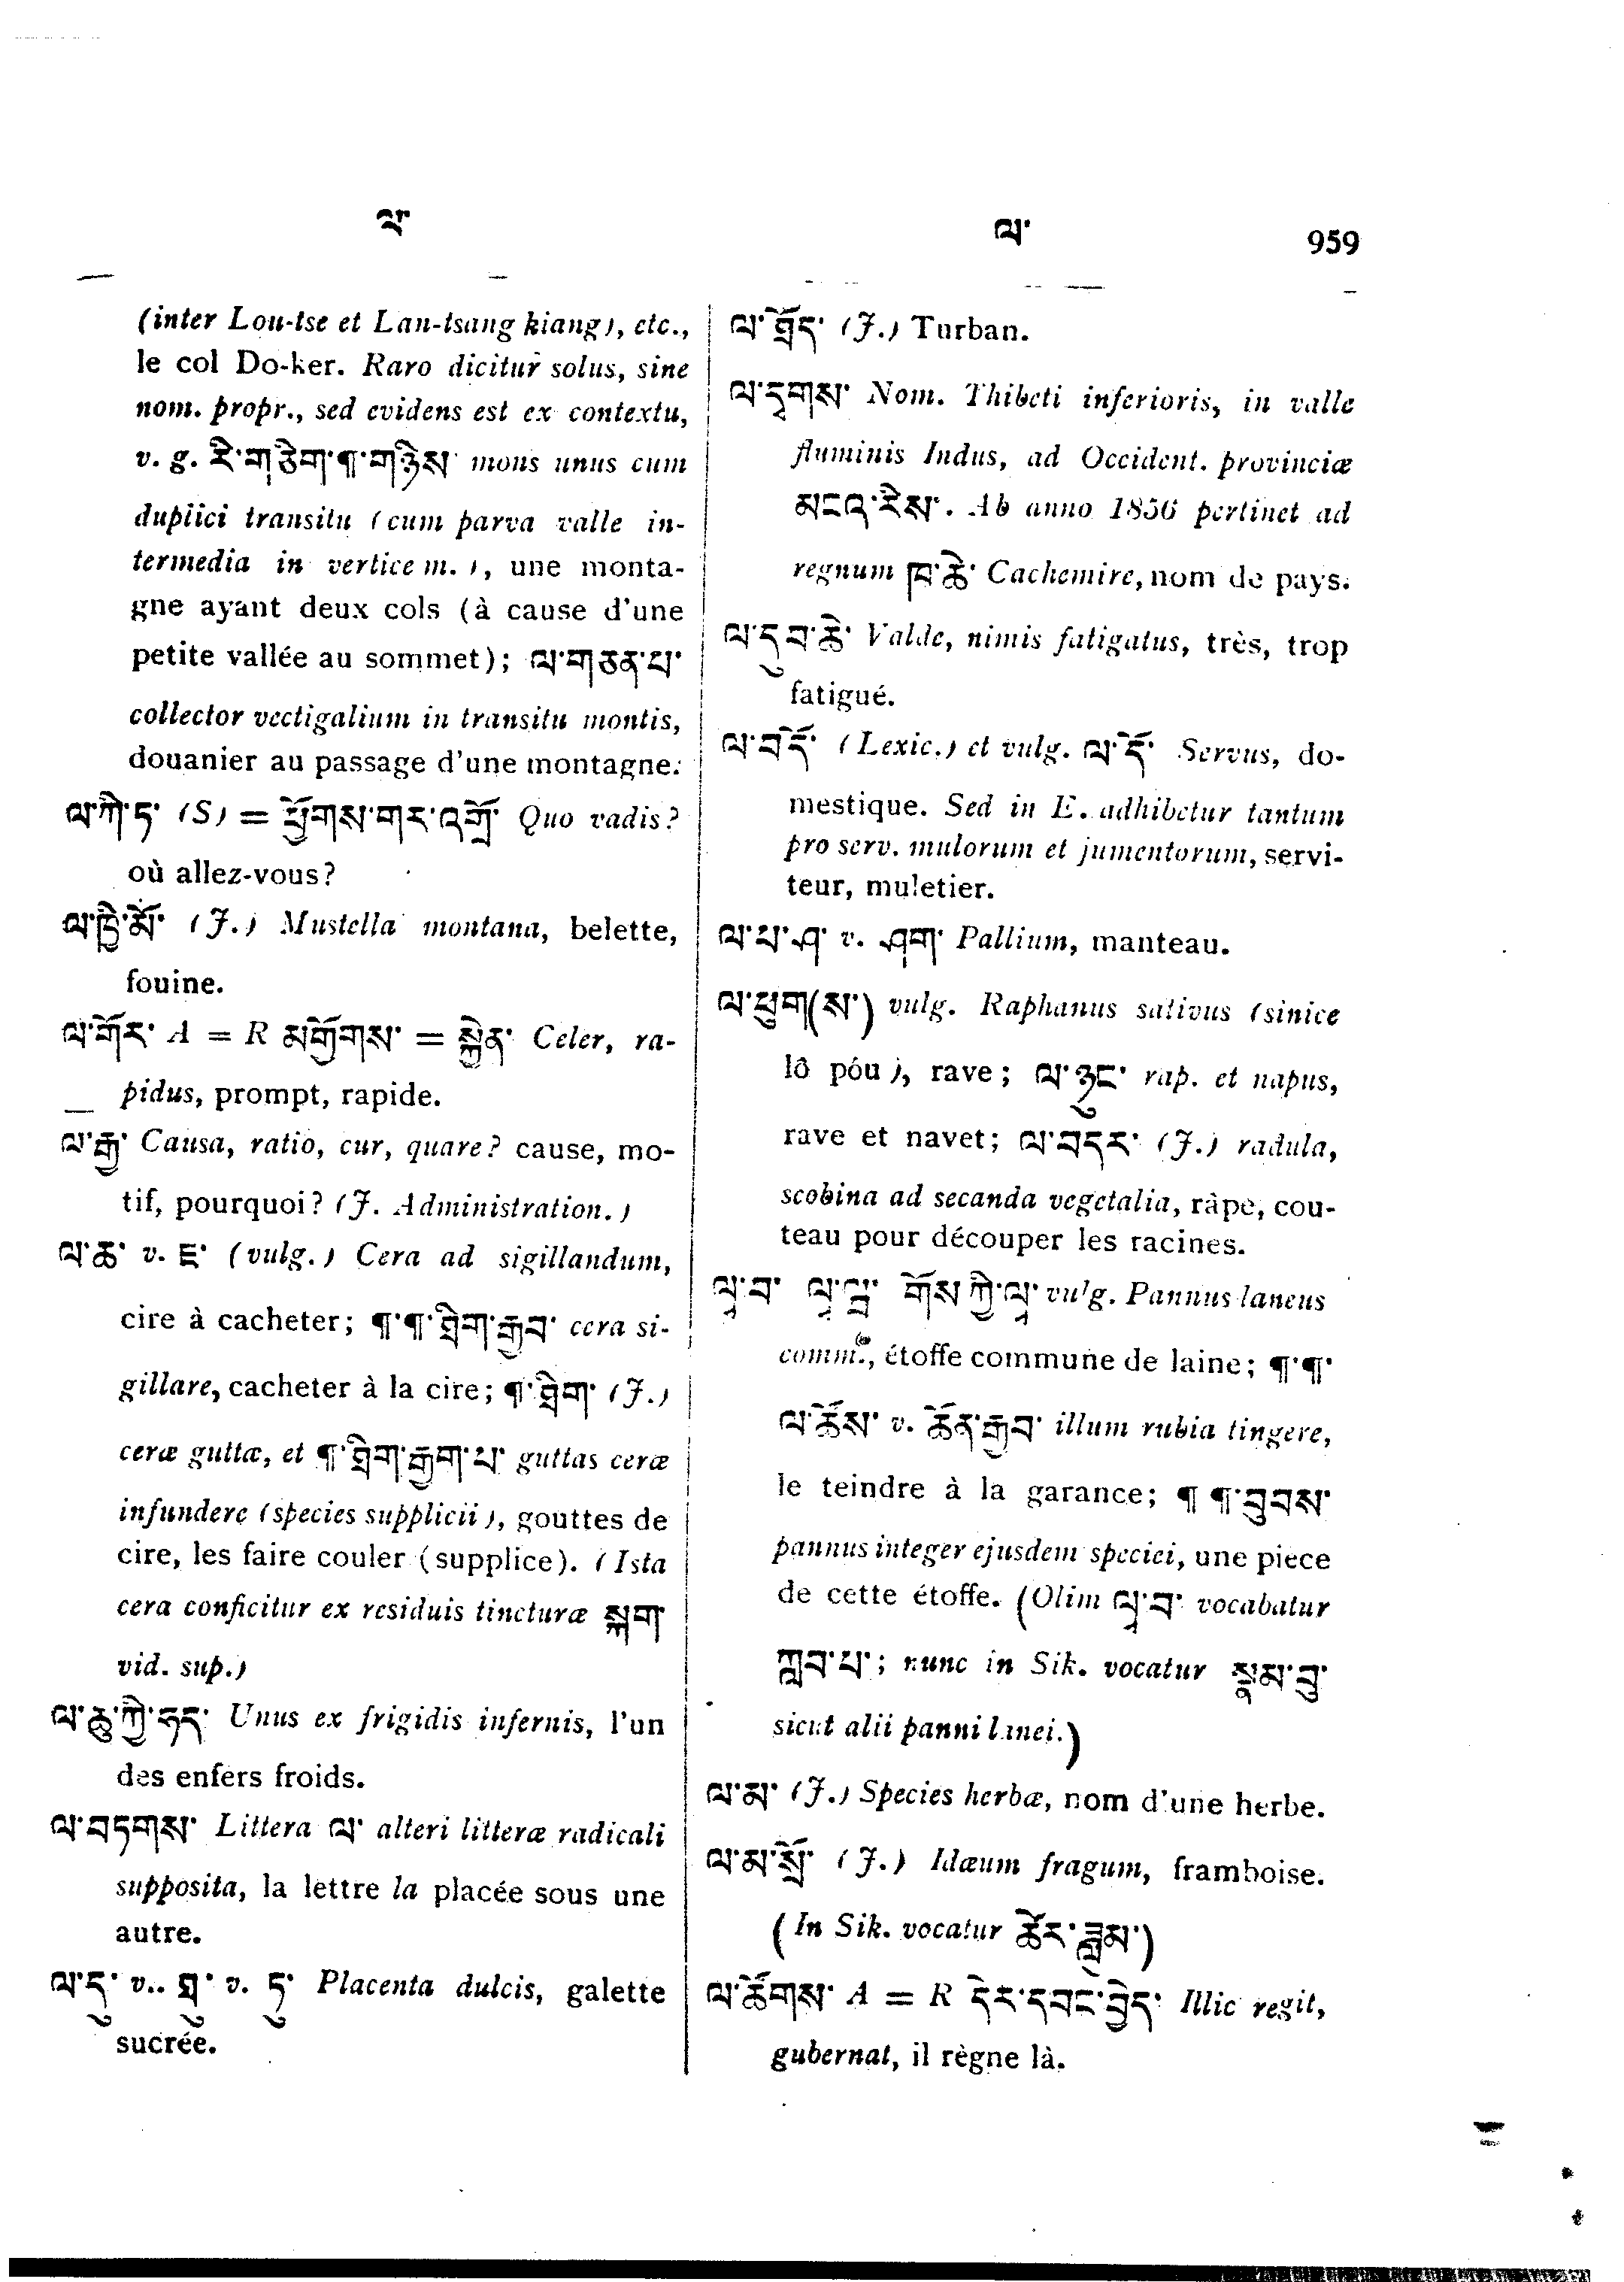 ལ་
ལ་
959
(inter Lou-tse et Lan-tsang kiang), etc.,
le col Do-ker. Raro dicitur solus, sine
nom. propr., sed evidens est ex contextu,
v. g. རི་གཅིག་¶་གཉིས་ mons unus cum
duplici transitu (cum parva valle in-
termedia in vertice m.), une monta-
gne ayant deux cols (à cause d'une
petite vallée au sommet); ལ་གཅན་པ་
collector vectigalium in transitu montis,
douanier au passage d'une montagne.
ལ་ཀི་ཏ་ (S) = ཕྱོགས་གར་འགྲོ་ Quo vadis?
où allez-vous?
ལ་ཁྱི་མོ་ (J.) Mustella montana, belette,
fouine.
ལ་གོར་ A = R མགྱོགས་ = སྐྱེན་ Celer, ra-
pidus, prompt, rapide.
ལ་རྒྱ་ Causa, ratio, cur, quare? cause, mo-
tif, pourquoi? (J. Administration.)
ལ་ཆ་ v. ཇ་ (vulg.) Cera ad sigillandum,
cire à cacheter; ¶་¶་ཐིག་རྒྱབ་ cera si-
gillare, cacheter à la cire; ¶་ཐིག་ (J.)
ceræ guttæ, et ¶་ཐིག་རྒྱག་པ་ guttas ceræ
infundere (species supplicii), gouttes de
cire, les faire couler (supplice). (Ista
cera conficitur ex residuis tincturæ སྐག་
vid. sup.)
ལ་ཆུ་ཀྱི་ཧད་ Unus ex frigidis infernis, l'un
des enfers froids.
ལ་བཏགས་ Littera ལ་ alteri litteræ radicali
supposita, la lettre la placée sous une
autre.
ལ་དུ་ v. v. ཏུ་ Placenta dulcis, galette
sucrée.
ལ་ཐོད་ (J.) Turban.
ལ་དྭགས་ Nom. Thibeti inferioris, in valle
fluminis Indus, ad Occident. provinciæ
མངའ་རིས་. Ab anno 1856 pertinet ad
regnum ཁ་ཆེ་ Cachemire, nom de pays.
ལ་དུབ་ཆེ་ Valde, nimis fatigatus, très, trop
fatigué.
ལ་བདོ་ (Lexic.) et vulg. ལ་དོ་ Servus, do-
mestique. Sed in E. adhibetur tantum
pro serv. mulorum et jumentorum, servi-
teur, muletier.
ལ་པ་ཤ་ v. ཤག་ Pallium, manteau.
ལ་ཕུག(ས་) vulg. Raphanus sativus (sinice
lô póu), rave; ལ་ཉུང་ rap. et napus,
rave et navet; ལ་བདར་ (J.) radula,
scobina ad secanda vegetalia, râpe, cou-
teau pour découper les racines.
ལྭ་བ་ ལྭ་ གོས་ཀྱི་ལྭ་ vulg. Pannus laneus
comm., étoffe commune de laine; ¶་¶་
ལ་ཚོས་ v. ཚོན་རྒྱབ་ illum rubia tingere,
le teindre à la garance; ¶ ¶་བུབས་
pannus integer ejusdem speciei, une piece
de cette étoffe. (Olim ལྭ་བ་ vocabatur
ཀླབ་པ་; nunc in Sik. vocatur སྣམ་བུ་
sicut alii panni lanei.)
ལ་མ་ (J.) Species herbæ, nom d'une herbe.
ལ་མ་སྲོ་ (J.) Idæum fragum, framboise.
(In Sik. vocatur ཚེར་ཟླུམ་)
ལ་ཚོགས་ A = R དེར་དབང་བྱེད་ Illic regit,
gubernat, il règne là.